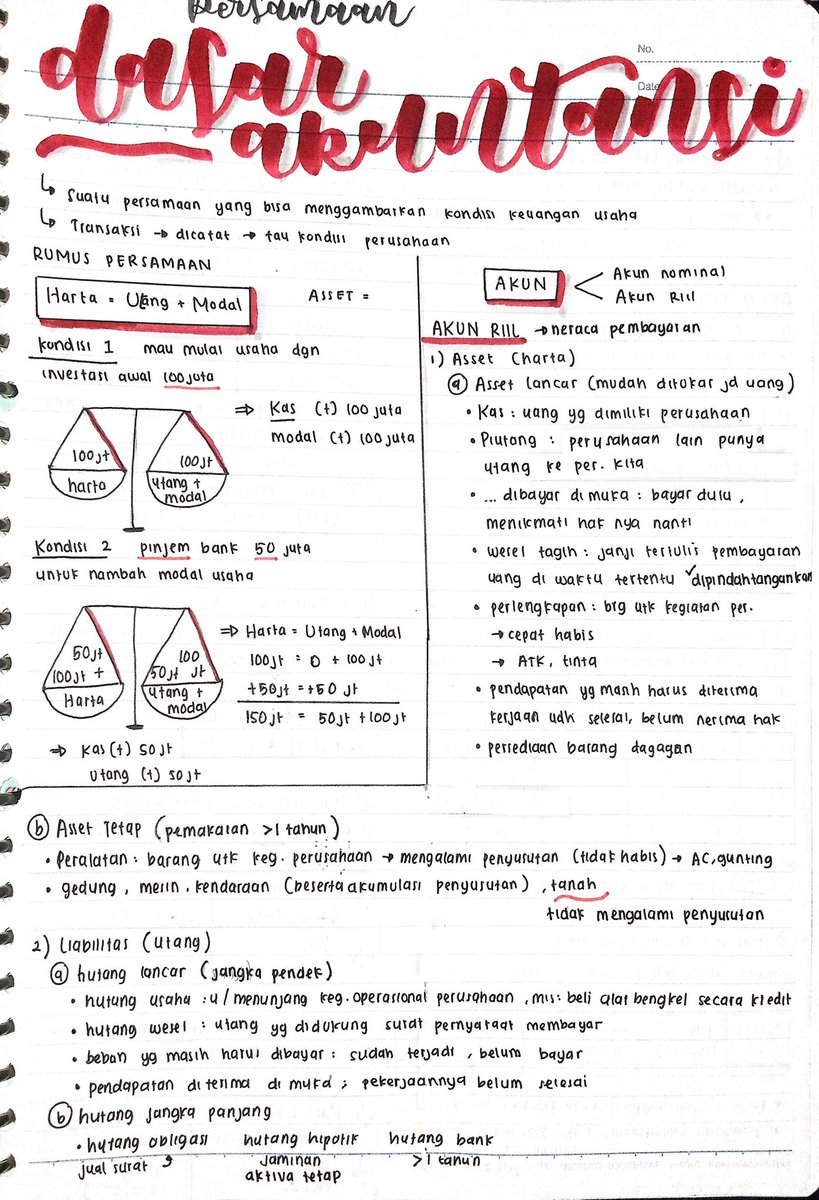 persamaan
dasar
akuntansi
No.
Date
↳ suatu persamaan yang bisa menggambarkan kondisi keuangan usaha
↳ Transaksi → dicatat → tau kondisi perusahaan
RUMUS PERSAMAAN
Harta = Utang + Modal
ASSET =
kondisi 1 mau mulai usaha dgn
investasi awal 100juta
100jt
harta
100jt
utang +
modal
⇒ Kas (+) 100 juta
modal (+) 100 juta
Kondisi 2 pinjem bank 50 juta
untuk nambah modal usaha
50jt
100jt +
Harta
100
50jt jt
utang +
modal
⇒ Harta = Utang + Modal
100jt = 0 + 100jt
+50jt = +50 jt
150jt = 50jt + 100jt
⇒ Kas (+) 50jt
utang (+) 50jt
AKUN
Akun nominal
Akun Riil
AKUN RIIL → neraca pembayaran
1) Asset (harta)
ⓐ Asset lancar (mudah ditukar jd uang)
• Kas : uang yg dimiliki perusahaan
• Piutang : perusahaan lain punya
utang ke per. kita
• ... dibayar di muka : bayar dulu,
menikmati hak nya nanti
• wesel tagih : janji tertulis pembayaran
uang di waktu tertentu ✓dipindahtangankan
• perlengkapan : brg utk kegiatan per.
→ cepat habis
→ ATK, tinta
• pendapatan yg masih harus diterima
kerjaan udh selesai, belum nerima hak
• persediaan barang dagagan
ⓑ Asset Tetap (pemakaian >1 tahun)
• Peralatan : barang utk keg. perusahaan → mengalami penyusutan (tidak habis) → AC, gunting
• gedung, mesin, kendaraan (beserta akumulasi penyusutan), tanah
tidak mengalami penyusutan
2) Liabilitas (utang)
ⓐ hutang lancar (jangka pendek)
• hutang usaha : u/ menunjang keg. operasional perusahaan, mis: beli alat bengkel secara kredit
• hutang wesel : utang yg didukung surat pernyataat membayar
• beban yg masih harus dibayar : sudah terjadi, belum bayar
• pendapatan diterima di muka ; pekerjaannya belum selesai
ⓑ hutang jangka panjang
• hutang obligasi hutang hipotik hutang bank
jual surat jaminan >1 tahun
aktiva tetap